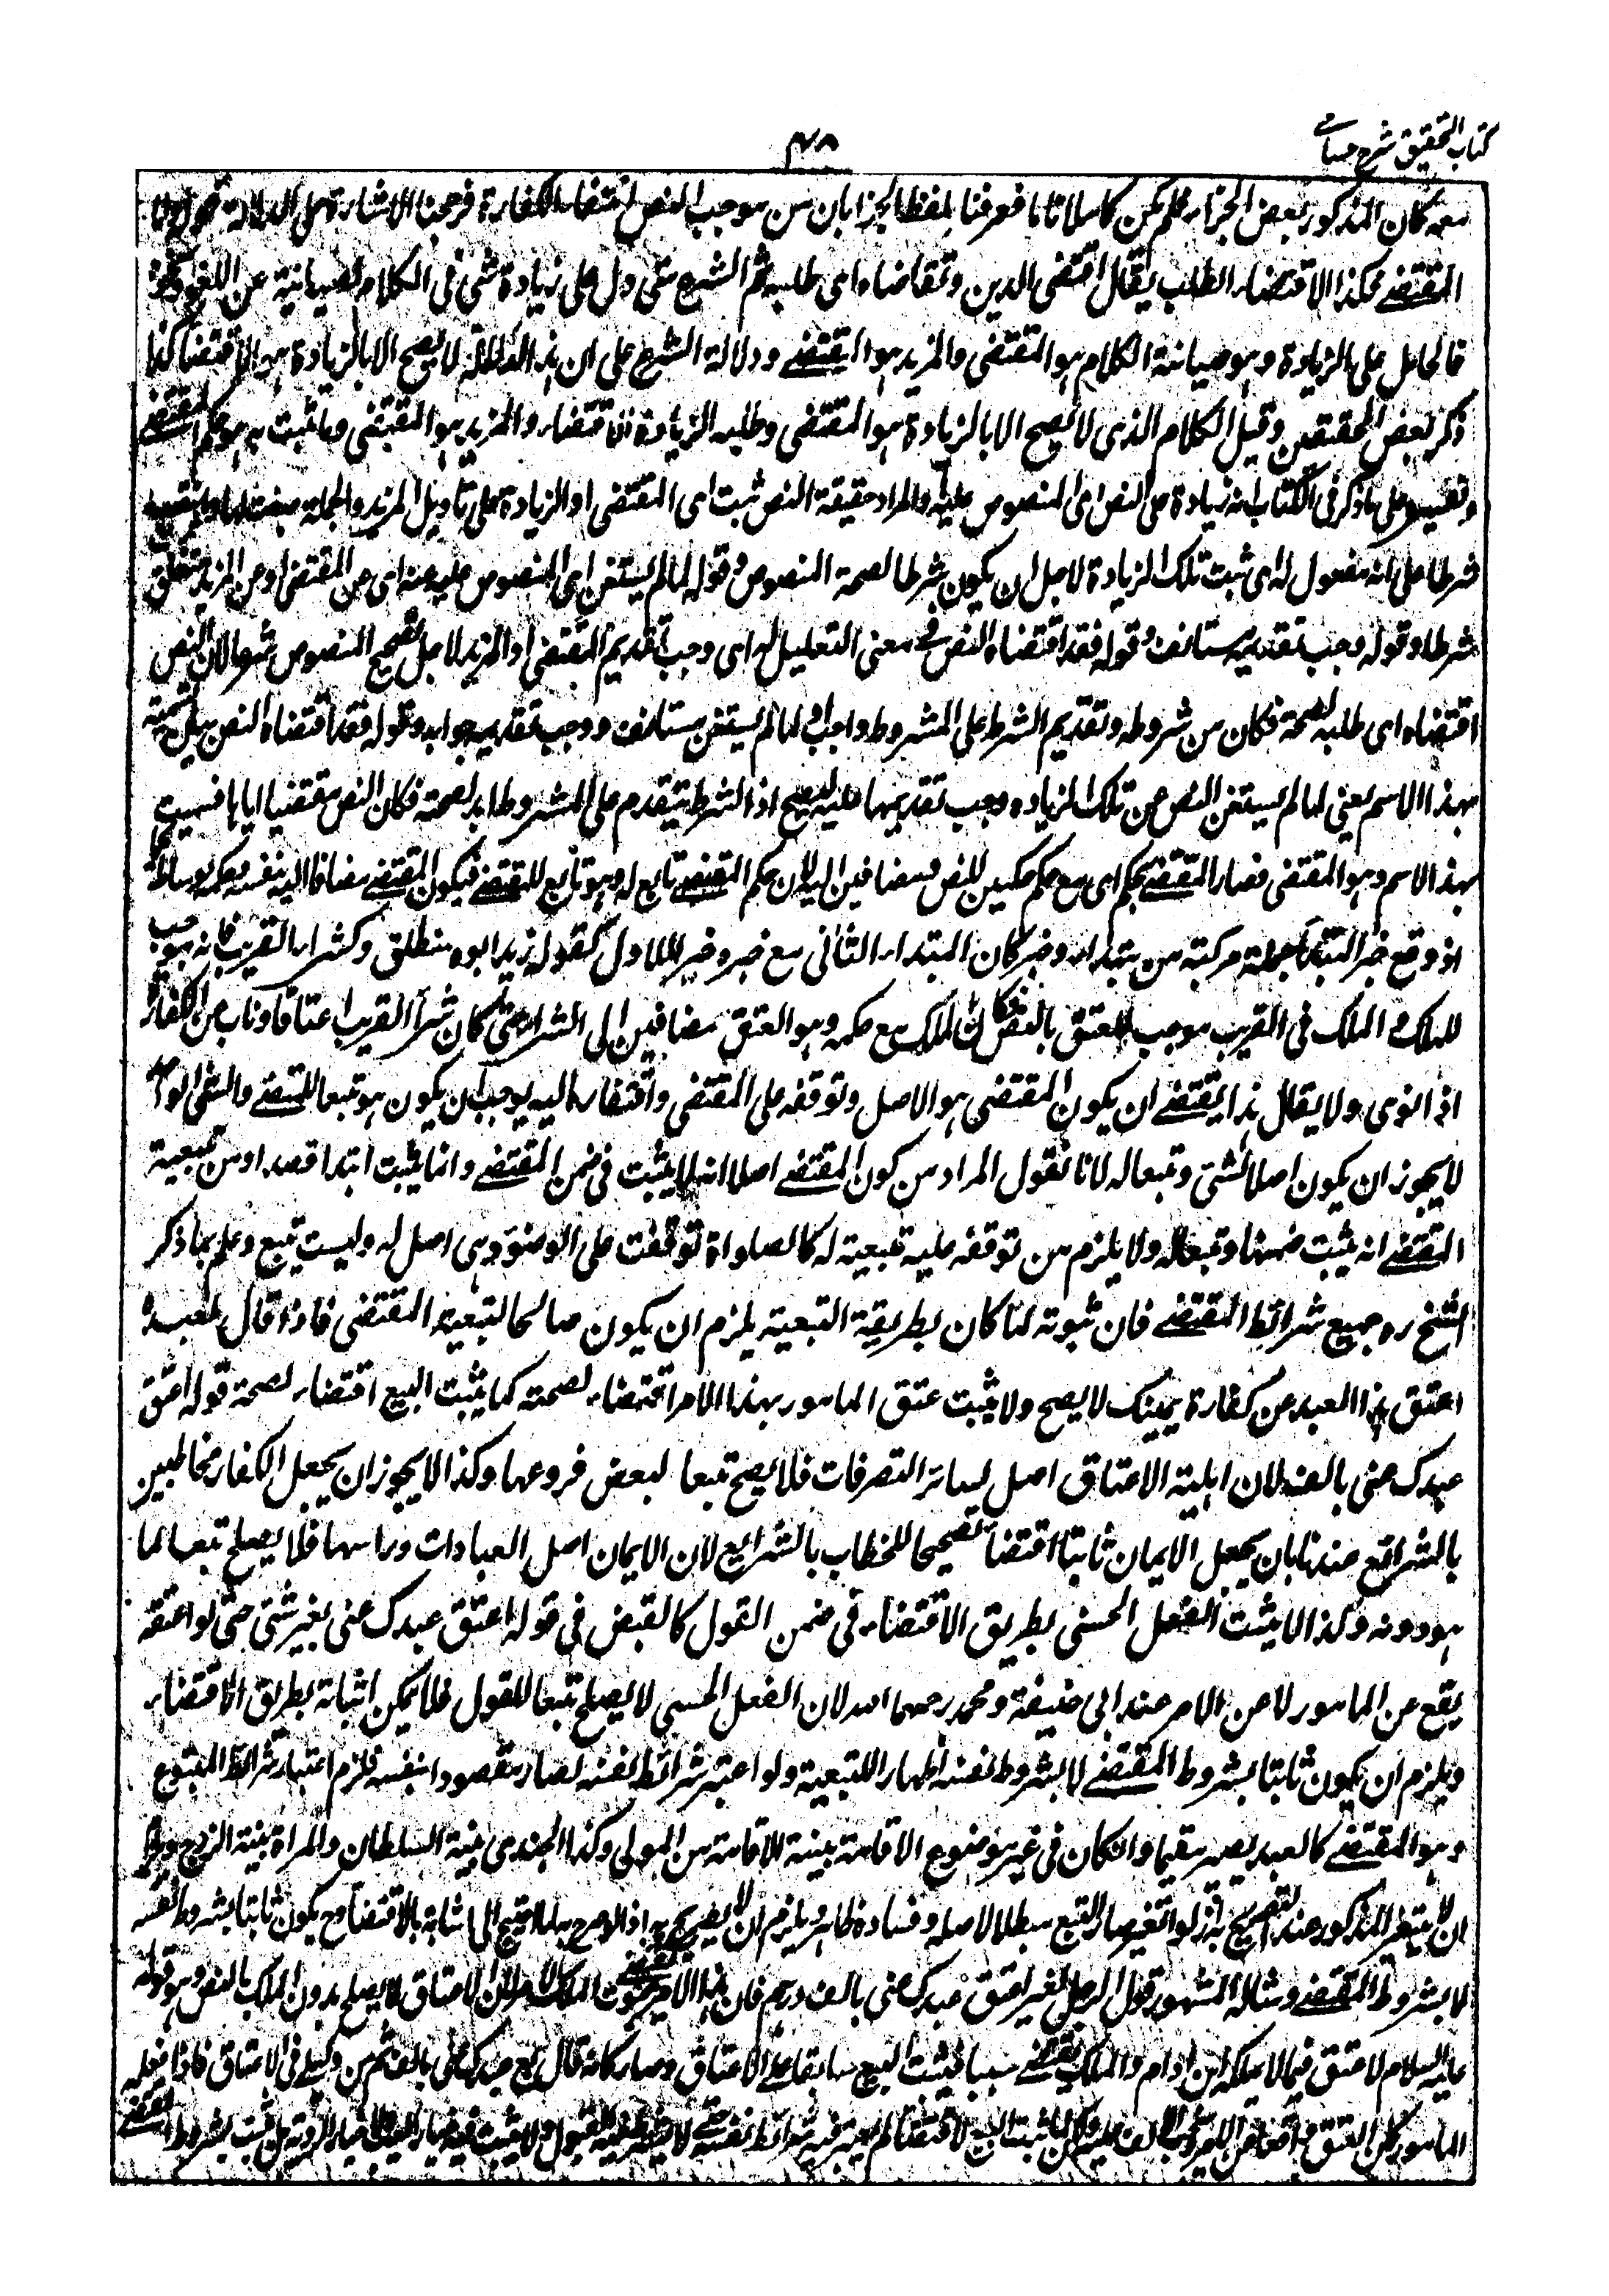 كتاب التحقيق شرح حسامى
۴۸
معه كان المذكور بعض الجزاء فلم يكن كاملا تاما فعرفنا بلفظ الجزاء بان من موجب النص انتفاء الكفارة فرجحنا الاشارة على الدلالة قوله واما
المقتضى هكذا الاقتضاء الطلب يقال اقتضى الدين وتقاضاه اى طلبه ثم الشرع متى دل على زيادة شئ فى الكلام لصيانته عن اللغو ونحوه
فالحامل على الزيادة وهو صيانة الكلام هو المقتضى والمزيد هو المقتضى ودلالة الشرع على ان هذا الكلام لا يصح الا بالزيادة هو الاقتضاء كذا
ذكر بعض المحققين وقيل الكلام الذى لا يصح الا بالزيادة هو المقتضى وطلبه الزيادة الاقتضاء والمزيد هو المقتضى وما ثبت به هو حكم المقتضى
وتفسيره على ما ذكر فى الكتاب انه زيادة على النص اى المنصوص عليه والمراد حقيقة النص ثبت اى المقتضى او الزيادة على تاويل المزيد والجملة صفة لها وانتصب
شرطا على انه مفعول له اى ثبت تلك الزيادة لاجل ان يكون شرطا لصحة المنصوص وقوله لما لم يستغن اى المنصوص عليه عنه اى عن المقتضى او عن المزيد متعلق
شرطا وقوله وجب تقديمه مستانف وقوله فقد اقتضاه النص فى معنى التعليل له اى وجب تقديم المقتضى او المزيد لاجل تصحيح المنصوص شرطا لان النص
اقتضاه اى طلبه لصحته فكان من شروطه وتقديم الشرط على المشروط واجب او لما لم يستغن مستانف ووجب تقديمه جوابه وقوله فقد اقتضاه النص بيان تسميته
بهذا الاسم يعنى لما لم يستغن النص عن تلك الزيادة وجب تقديمها عليه ليصح اذ الشرط يتقدم على المشروط ابدا لصحته فكان النص مقتضيا اياها فسميت
بهذا الاسم وهو المقتضى فصار المقتضى بحكمه اى مع حكمه حكمين للنص مضافين اليه لان حكم المقتضى تابع له وهو تابع للمقتضى فيكون المقتضى مضافا اليه بنفسه وحكمه بوساطته
اذ وقع خبر المبتدأ جملة مركبة من مبتداء وخبر كان المبتداء الثانى مع خبره خبرا للاول كقوله زيد ابوه منطلق وكشراء القريب فانه موجب
للملك والملك فى القريب موجب للعتق بالنص فكان الملك مع حكمه وهو العتق مضافين الى الشراء حتى كان شراء القريب اعتاقا وناب عن الكفارة
اذا نوى ولا يقال هذا يقتضى ان يكون المقتضى هو الاصل وتوقفه على المقتضى وافتقاره اليه يوجب ان يكون هو تبعا للمقتضى والشئ الواحد
لا يجوز ان يكون اصلا لشئ وتبعا له لانا نقول المراد من كون المقتضى اصلا انه لا يثبت فى ضمن المقتضى وانما يثبت ابتداء قصدا ومن تبعية
المقتضى انه يثبت ضمنا وتبعا له ولا يلزم من توقفه عليه تبعيته له كالصلواة توقفت على الوضوء وهى اصل له وليست بتبع وعلم بما ذكر
الشيخ ره جميع شرائط المقتضى فان ثبوته لما كان بطريقة التبعية يلزم ان يكون صالحا لتبعية المقتضى فاذا قال لعبده
اعتق هذا العبد عن كفارة يمينك لا يصح ولا يثبت عتق المامور بهذا الامر اقتضاء لصحته كما يثبت البيع اقتضاء لصحة قوله اعتق
عبدك عنى بالف لان اهلية الاعتاق اصل لسائر التصرفات فلا يصح تبعا لبعض فروعها وكذا لا يجوز ان يجعل الكفار مخاطبين
بالشرائع عندنا بان يجعل الايمان ثابتا اقتضاء تصحيحا للخطاب بالشرائع لان الايمان اصل العبادات وراسها فلا يصلح تبعا لما
هو دونه وكذا لا يثبت الفعل الحسى بطريق الاقتضاء فى ضمن القول كالقبض فى قوله اعتق عبدك عنى بغير شئ حتى لو اعتقه
يقع عن المامور لا عن الامر عند ابى حنيفة ومحمد رحمهما الله لان الفعل الحسى لا يصلح تبعا للقول فلا يمكن اثباته بطريق الاقتضاء
ويلزم ان يكون ثابتا بشروط المقتضى لا بشروط نفسه اظهارا للتبعية ولو اعتبر شرائط نفسه لصار مقصودا بنفسه فلزم اعتبار شرائط المتبوع
وهو المقتضى كالعبد يصير مقيما وان كان فى غير موضع الاقامة بنية الاقامة من المولى وكذا الجندى بنية السلطان والمراة بنية الزوج
ان لا يتغير المذكور عند التصريح به اذ لو تغير صار التبع مبطلا لاصله وفساده ظاهر ويلزم ان لا يصرح به اذ لو صرح به لا يحتاج الى اثباته بالاقتضاء وح يكون ثابتا بشروط نفسه
لا بشروط المقتضى ومثاله المشهور قول الرجل لغيره اعتق عبدك عنى بالف درهم فان هذا الامر يقتضى ثبوت الملك للامر لان الاعتاق لا يصلح بدون الملك بالنص وهو قوله
عليه السلام لا عتق فيما لا يملكه ابن ادم والملك يقتضى سببا فيثبت البيع سابقا على الاعتاق وصار كانه قال بع عبدك عنى بالف ثم كن وكيلى فى الاعتاق فاذا فعله